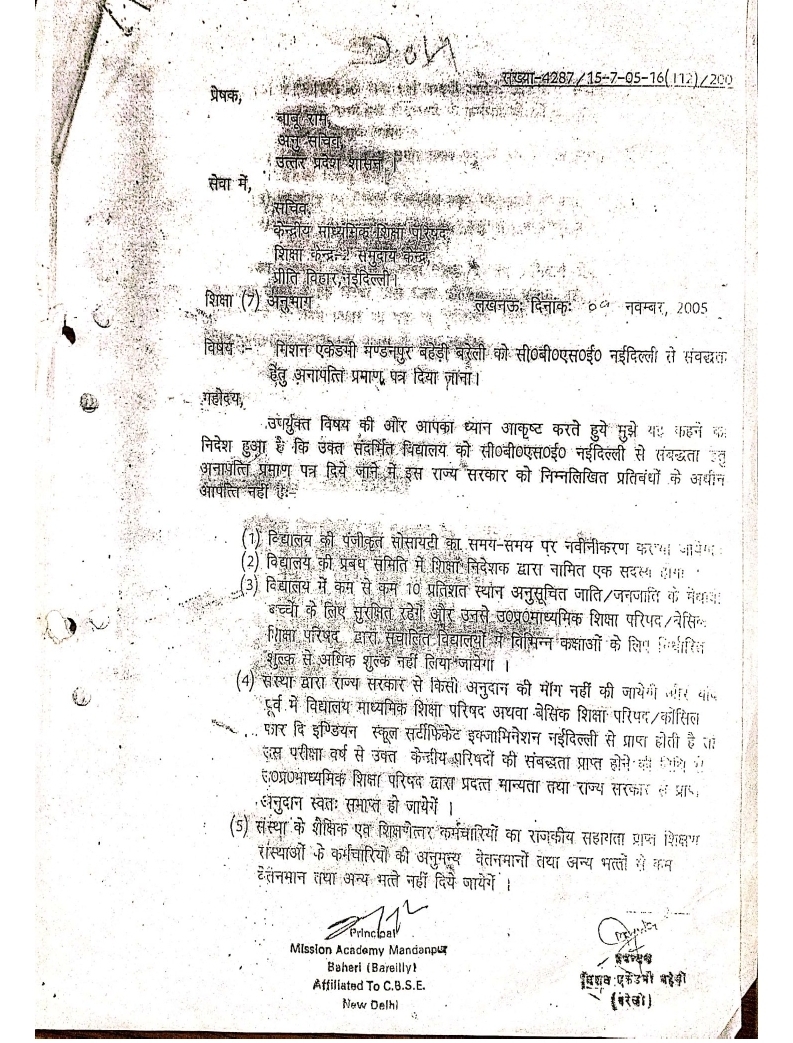 संख्या-4287/15-7-05-16(112)/200
प्रेषक,
बाबू राम,
अनु सचिव,
उत्तर प्रदेश शासन ।
सेवा में,
सचिव,
केन्द्रीय माध्यमिक शिक्षा परिषद,
शिक्षा केन्द्र-2 समुदाय केन्द्र,
प्रीति विहार,नईदिल्ली।
शिक्षा (7) अनुभाग लखनऊः दिनांकः 09 नवम्बर, 2005
विषय :- मिशन एकेडमी मण्डनपुर बहेड़ी बरेली को सी0बी0एस0ई0 नईदिल्ली से संबद्धता
हेतु अनापत्ति प्रमाण पत्र दिया जाना।
महोदय,
उपर्युक्त विषय की ओर आपका ध्यान आकृष्ट करते हुये मुझे यह कहने का
निदेश हुआ है कि उक्त संदर्भित विद्यालय को सी0बी0एस0ई0 नईदिल्ली से संबद्धता हेतु
अनापत्ति प्रमाण पत्र दिये जाने में इस राज्य सरकार को निम्नलिखित प्रतिबंधों के अधीन
आपत्ति नहीं हैः-
(1) विद्यालय की पंजीकृत सोसायटी का समय-समय पर नवीनीकरण कराया जायेगा
(2) विद्यालय की प्रबंध समिति में शिक्षा निदेशक द्वारा नामित एक सदस्य होगा
(3) विद्यालय में कम से कम 10 प्रतिशत स्थान अनुसूचित जाति/जनजाति के मेधावी
बच्चों के लिए सुरक्षित रहेगें और उनसे उ0प्र0माध्यमिक शिक्षा परिषद/बेसिक
शिक्षा परिषद द्वारा संचालित विद्यालयों में विभिन्न कक्षाओं के लिए निर्धारित
शुल्क से अधिक शुल्क नहीं लिया जायेगा ।
(4) संस्था द्वारा राज्य सरकार से किसी अनुदान की माँग नहीं की जायेगी और यदि
पूर्व में विद्यालय माध्यमिक शिक्षा परिषद अथवा बेसिक शिक्षा परिषद/कौंसिल
फार दि इण्डियन स्कूल सर्टीफिकेट इक्जामिनेशन नईदिल्ली से प्राप्त होती है तो
उस परीक्षा वर्ष से उक्त केन्द्रीय परिषदों की संबद्धता प्राप्त होने की तिथि से
उ0प्र0माध्यमिक शिक्षा परिषद द्वारा प्रदत्त मान्यता तथा राज्य सरकार से प्राप्त
अनुदान स्वतः समाप्त हो जायेगें ।
(5) संस्था के शैक्षिक एवं शिक्षणेत्तर कर्मचारियों का राजकीय सहायता प्राप्त शिक्षण
संस्थाओं के कर्मचारियों की अनुमन्य वेतनमानों तथा अन्य भत्तों से कम
वेतनमान तथा अन्य भत्ते नहीं दिये जायेगें ।
Principal
Mission Academy Mandanpur
Baheri (Bareilly)
Affiliated To C.B.S.E.
New Delhi
प्रबन्धक
मिशन एकेडमी बहेड़ी
(बरेली)